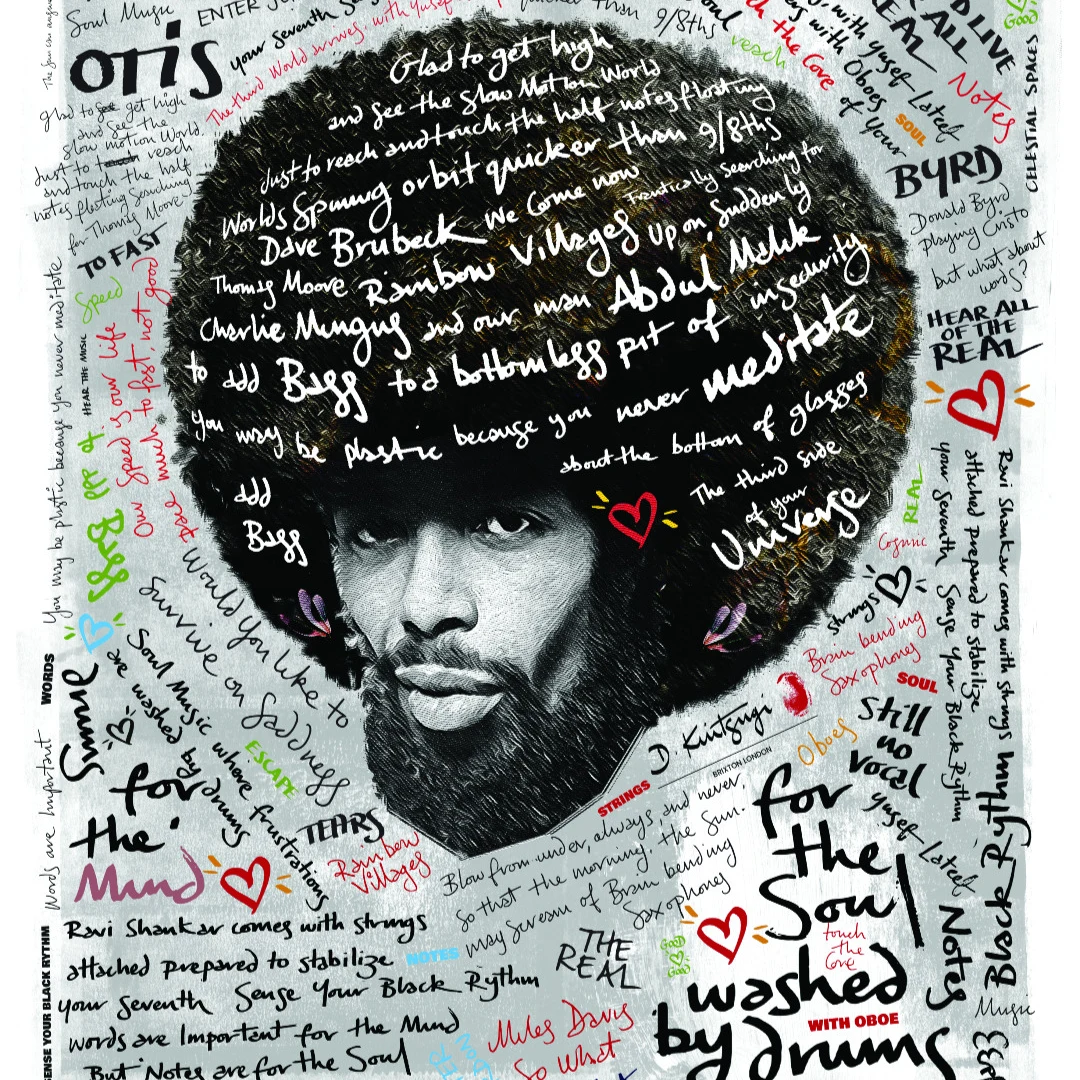 Soul Music
ENTER
your Seventh
The third World survives, with Yusef
quicker than
9/8ths
OTIS
Glad to see get high
and see the
slow motion World
Just to touch reach
and touch the half
notes floating Searching
for Thomas Moore
TO FAST
Speed
Glad to get high
and see the Slow Motion World
Just to reach and touch the half notes floating
Worlds Spinning orbit quicker than 9/8ths
Dave Brubeck We Come now
Frantically Searching for
Thomas Moore Rainbow Villages Up on, Suddenly
Charlie Mungus and our man Abdul Malik
to add Bass to a bottomless pit of insecurity
you may be plastic because you never meditate
about the bottom of glasses
add
Bass
The third side
of your
Universe
reach
the Core
with Yusef
with Oboes
of Your
Yusef Lateef
SOUL
REAL
ALL
LIVE
GOOD
Notes
CELESTIAL SPACES
BYRD
Donald Byrd
playing Cristo
but what about
words?
HEAR ALL
OF THE
REAL
You may be plastic because you never meditate
HEAR THE MUSIC
Our Speed is our life
pace much to fast, not good
Bass
Would You like to
Survive on Saddness
Soul Music where frustrations
are washed by drums
ESCAPE
TEARS
Rainbow
Villages
WORDS
Words are Important
SENSE YOUR BLACK RYTHM
Some
for
the
Mind
REAL
Cosmic
Strings
Brain bending
Saxophones
SOUL
Still
no
vocal
Oboes
Yusef Lateef
Notes
Ravi Shankar comes with strings
attached prepared to stabilize
your Seventh Sense Your Black Rythm
Black Rythm
Music
D. Kintsugi
BRIXTON LONDON
STRINGS
Blow from under, always, and never,
So that the morning. the Sun.
may Scream of Brain bending
Saxophones
THE
REAL
NOTES
Ravi Shankar comes with strings
attached prepared to stabilize
your Seventh Sense Your Black Rythm
words are Important for the Mind
But Notes are for the Soul
Miles Davis
So What
GOOD
GOOD
for
the
Soul
touch
the
Core
washed
WITH OBOE
by drums